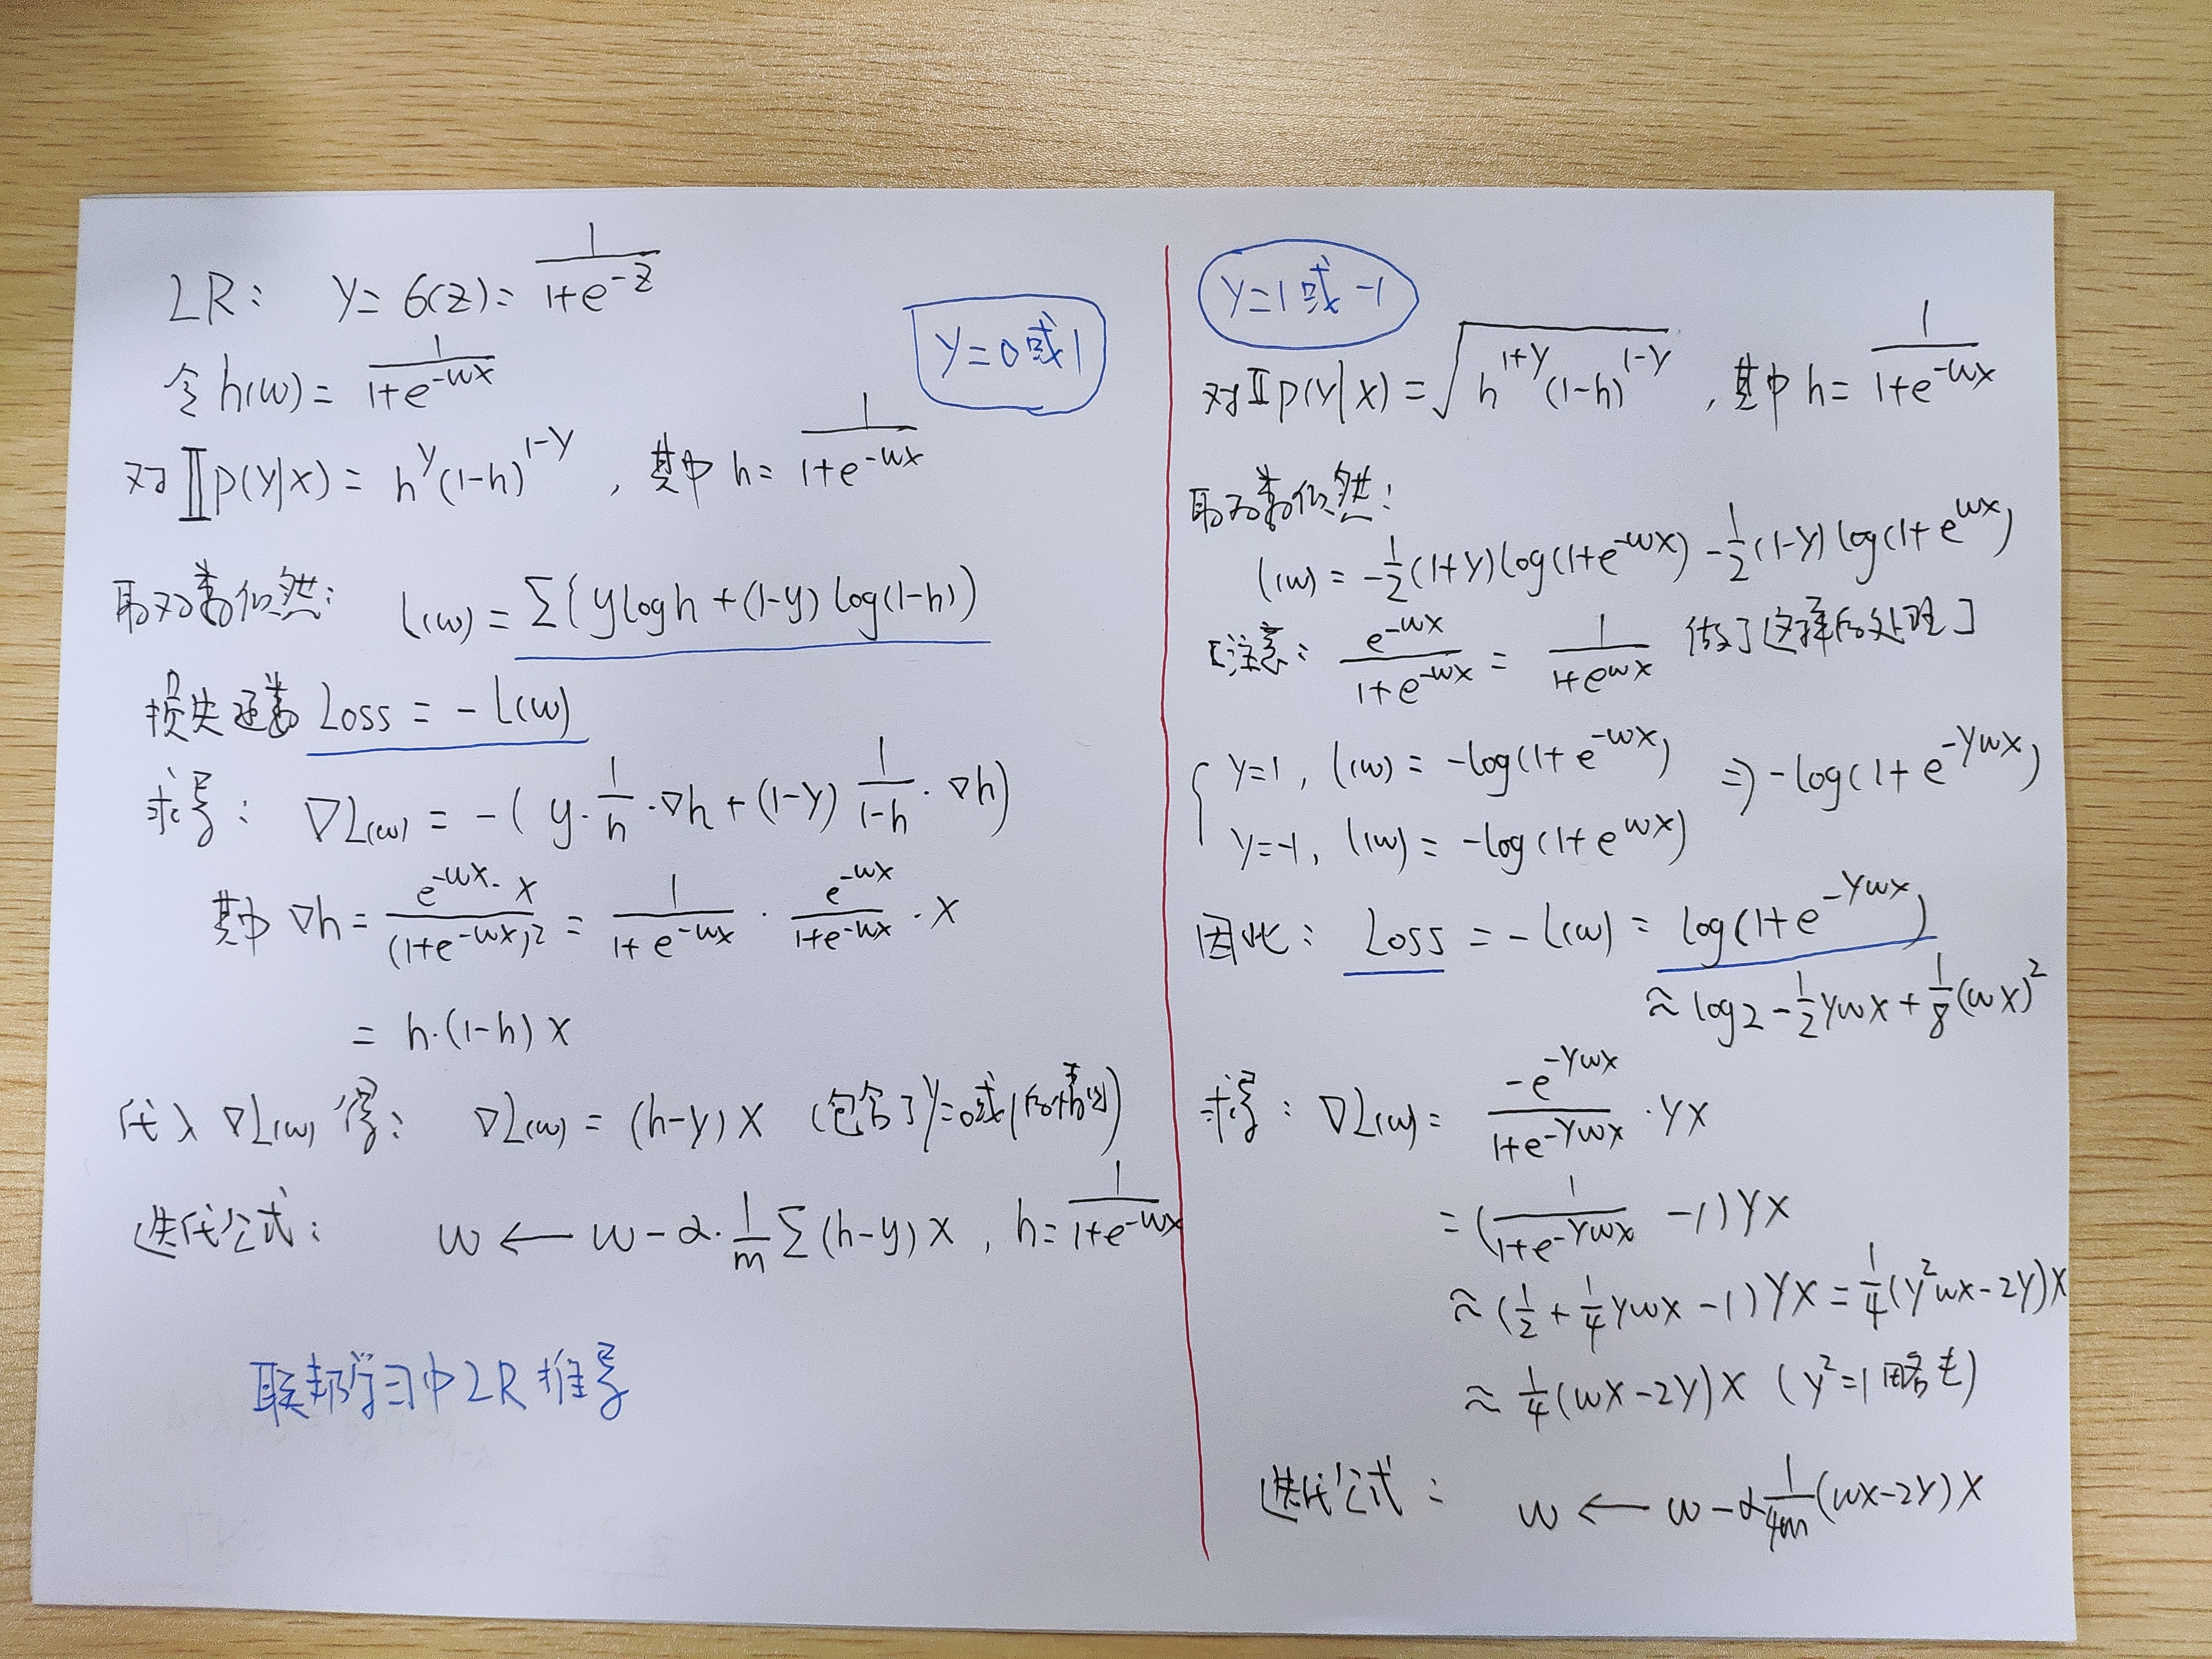 LR: y=σ(z)=1/(1+e^{-z})
y=0或1
令h(w)=1/(1+e^{-wx})
对∏p(y|x)=h^y(1-h)^{1-y},其中h=1/(1+e^{-wx})
取对数似然: l(w)=Σ(ylogh+(1-y)log(1-h))
损失函数Loss=-l(w)
求导: ∇L(w)=-(y·1/h·∇h+(1-y)1/(1-h)·∇h)
其中∇h=e^{-wx}·x/(1+e^{-wx})^2=1/(1+e^{-wx})·e^{-wx}/(1+e^{-wx})·x
=h·(1-h)x
代入∇L(w)得: ∇L(w)=(h-y)x (包含了y=0或1的情况)
迭代公式: w←w-α·1/m Σ(h-y)x,h=1/(1+e^{-wx})
联邦学习中LR推导
y=1或-1
对∏p(y|x)=√(h^{1+y}(1-h)^{1-y}),其中h=1/(1+e^{-wx})
取对数似然:
l(w)=-1/2(1+y)log(1+e^{-wx})-1/2(1-y)log(1+e^{wx})
[注意: e^{-wx}/(1+e^{-wx})=1/(1+e^{wx}) 做了这样的处理]
{y=1, l(w)=-log(1+e^{-wx}) ⇒-log(1+e^{-ywx})
y=-1, l(w)=-log(1+e^{wx})
因此: Loss=-l(w)=log(1+e^{-ywx})
≈log2-1/2ywx+1/8(wx)^2
求导: ∇L(w)=-e^{-ywx}/(1+e^{-ywx})·yx
=(1/(1+e^{-ywx})-1)yx
≈(1/2+1/4ywx-1)yx=1/4(y^2wx-2y)x
≈1/4(wx-2y)x (y^2=1略去)
迭代公式: w←w-α1/4m(wx-2y)x